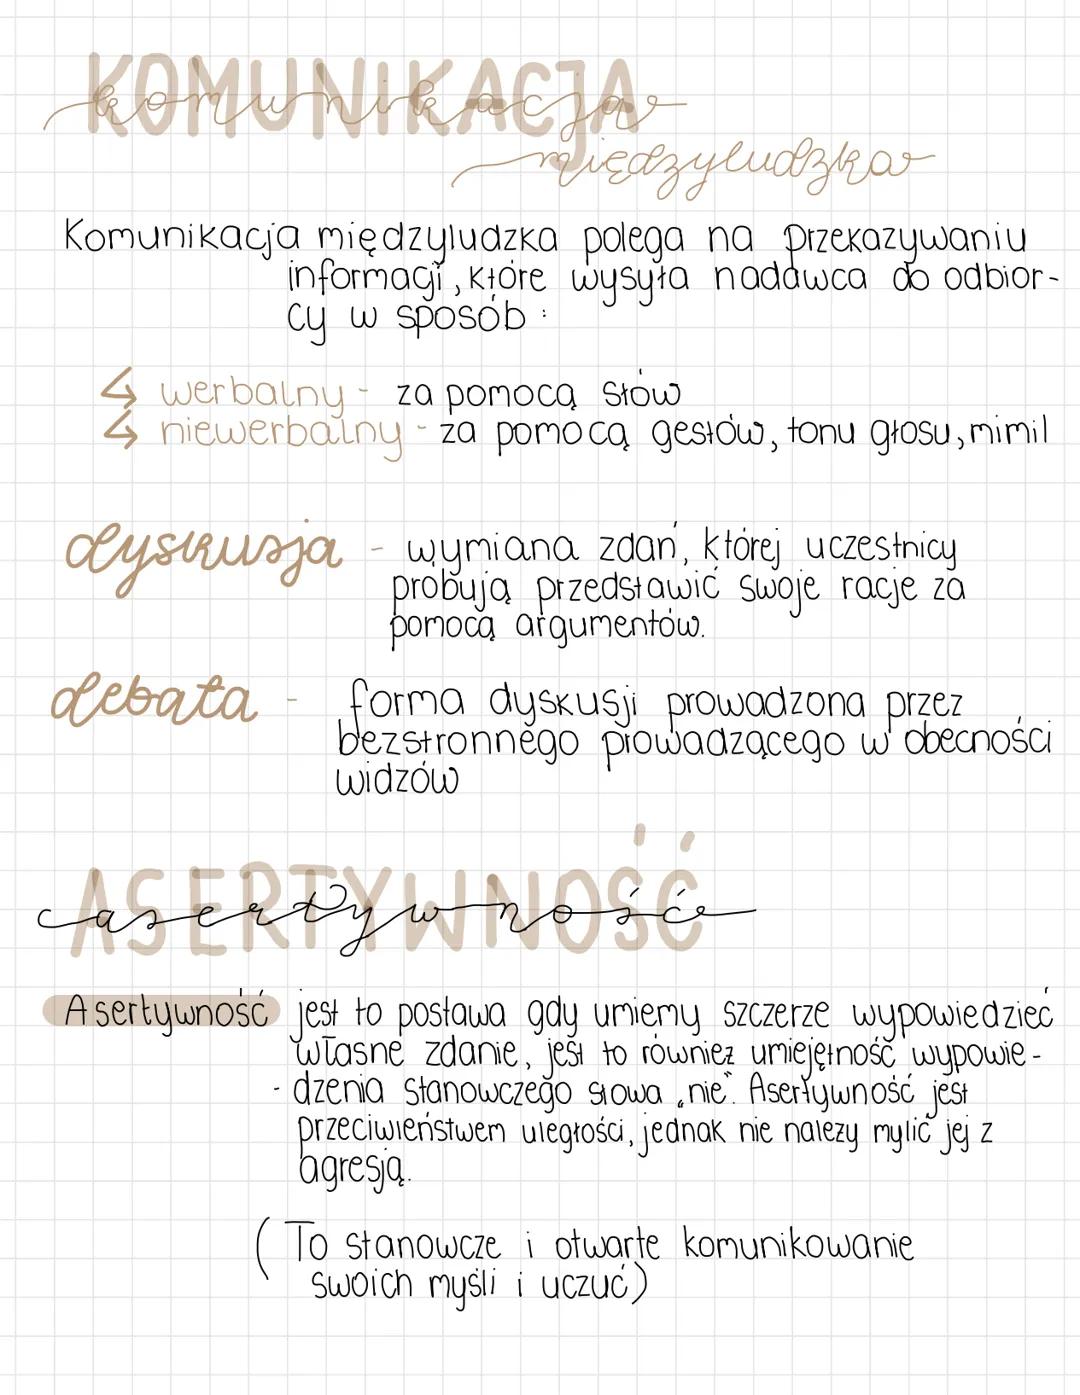 KOMUNIKACJA
komunikacja
międzyludzka
Komunikacja międzyludzka polega na przekazywaniu
informacji, które wysyła nadawca do odbior-
cy w sposób :
↳ werbalny - za pomocą słów
↳ niewerbalny - za pomocą gestów, tonu głosu, mimil
dyskusja - wymiana zdań, której uczestnicy
probują przedstawić swoje racje za
pomocą argumentów.
debata - forma dyskusji prowadzona przez
bezstronnego prowadzącego w obecności
widzów
ASERTYWNOŚĆ
asertywność
Asertywność jest to postawa gdy umiemy szczerze wypowiedzieć
własne zdanie, jest to również umiejętność wypowie-
- dzenia stanowczego słowa „nie". Asertywność jest
przeciwieństwem uległości, jednak nie należy mylić jej z
agresją.
(To stanowcze i otwarte komunikowanie
swoich myśli i uczuć)